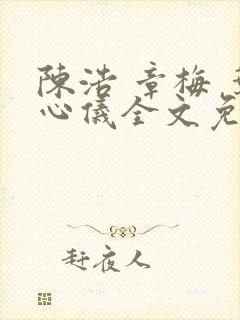 陳浩 章梅
心儀全文免
赶夜人